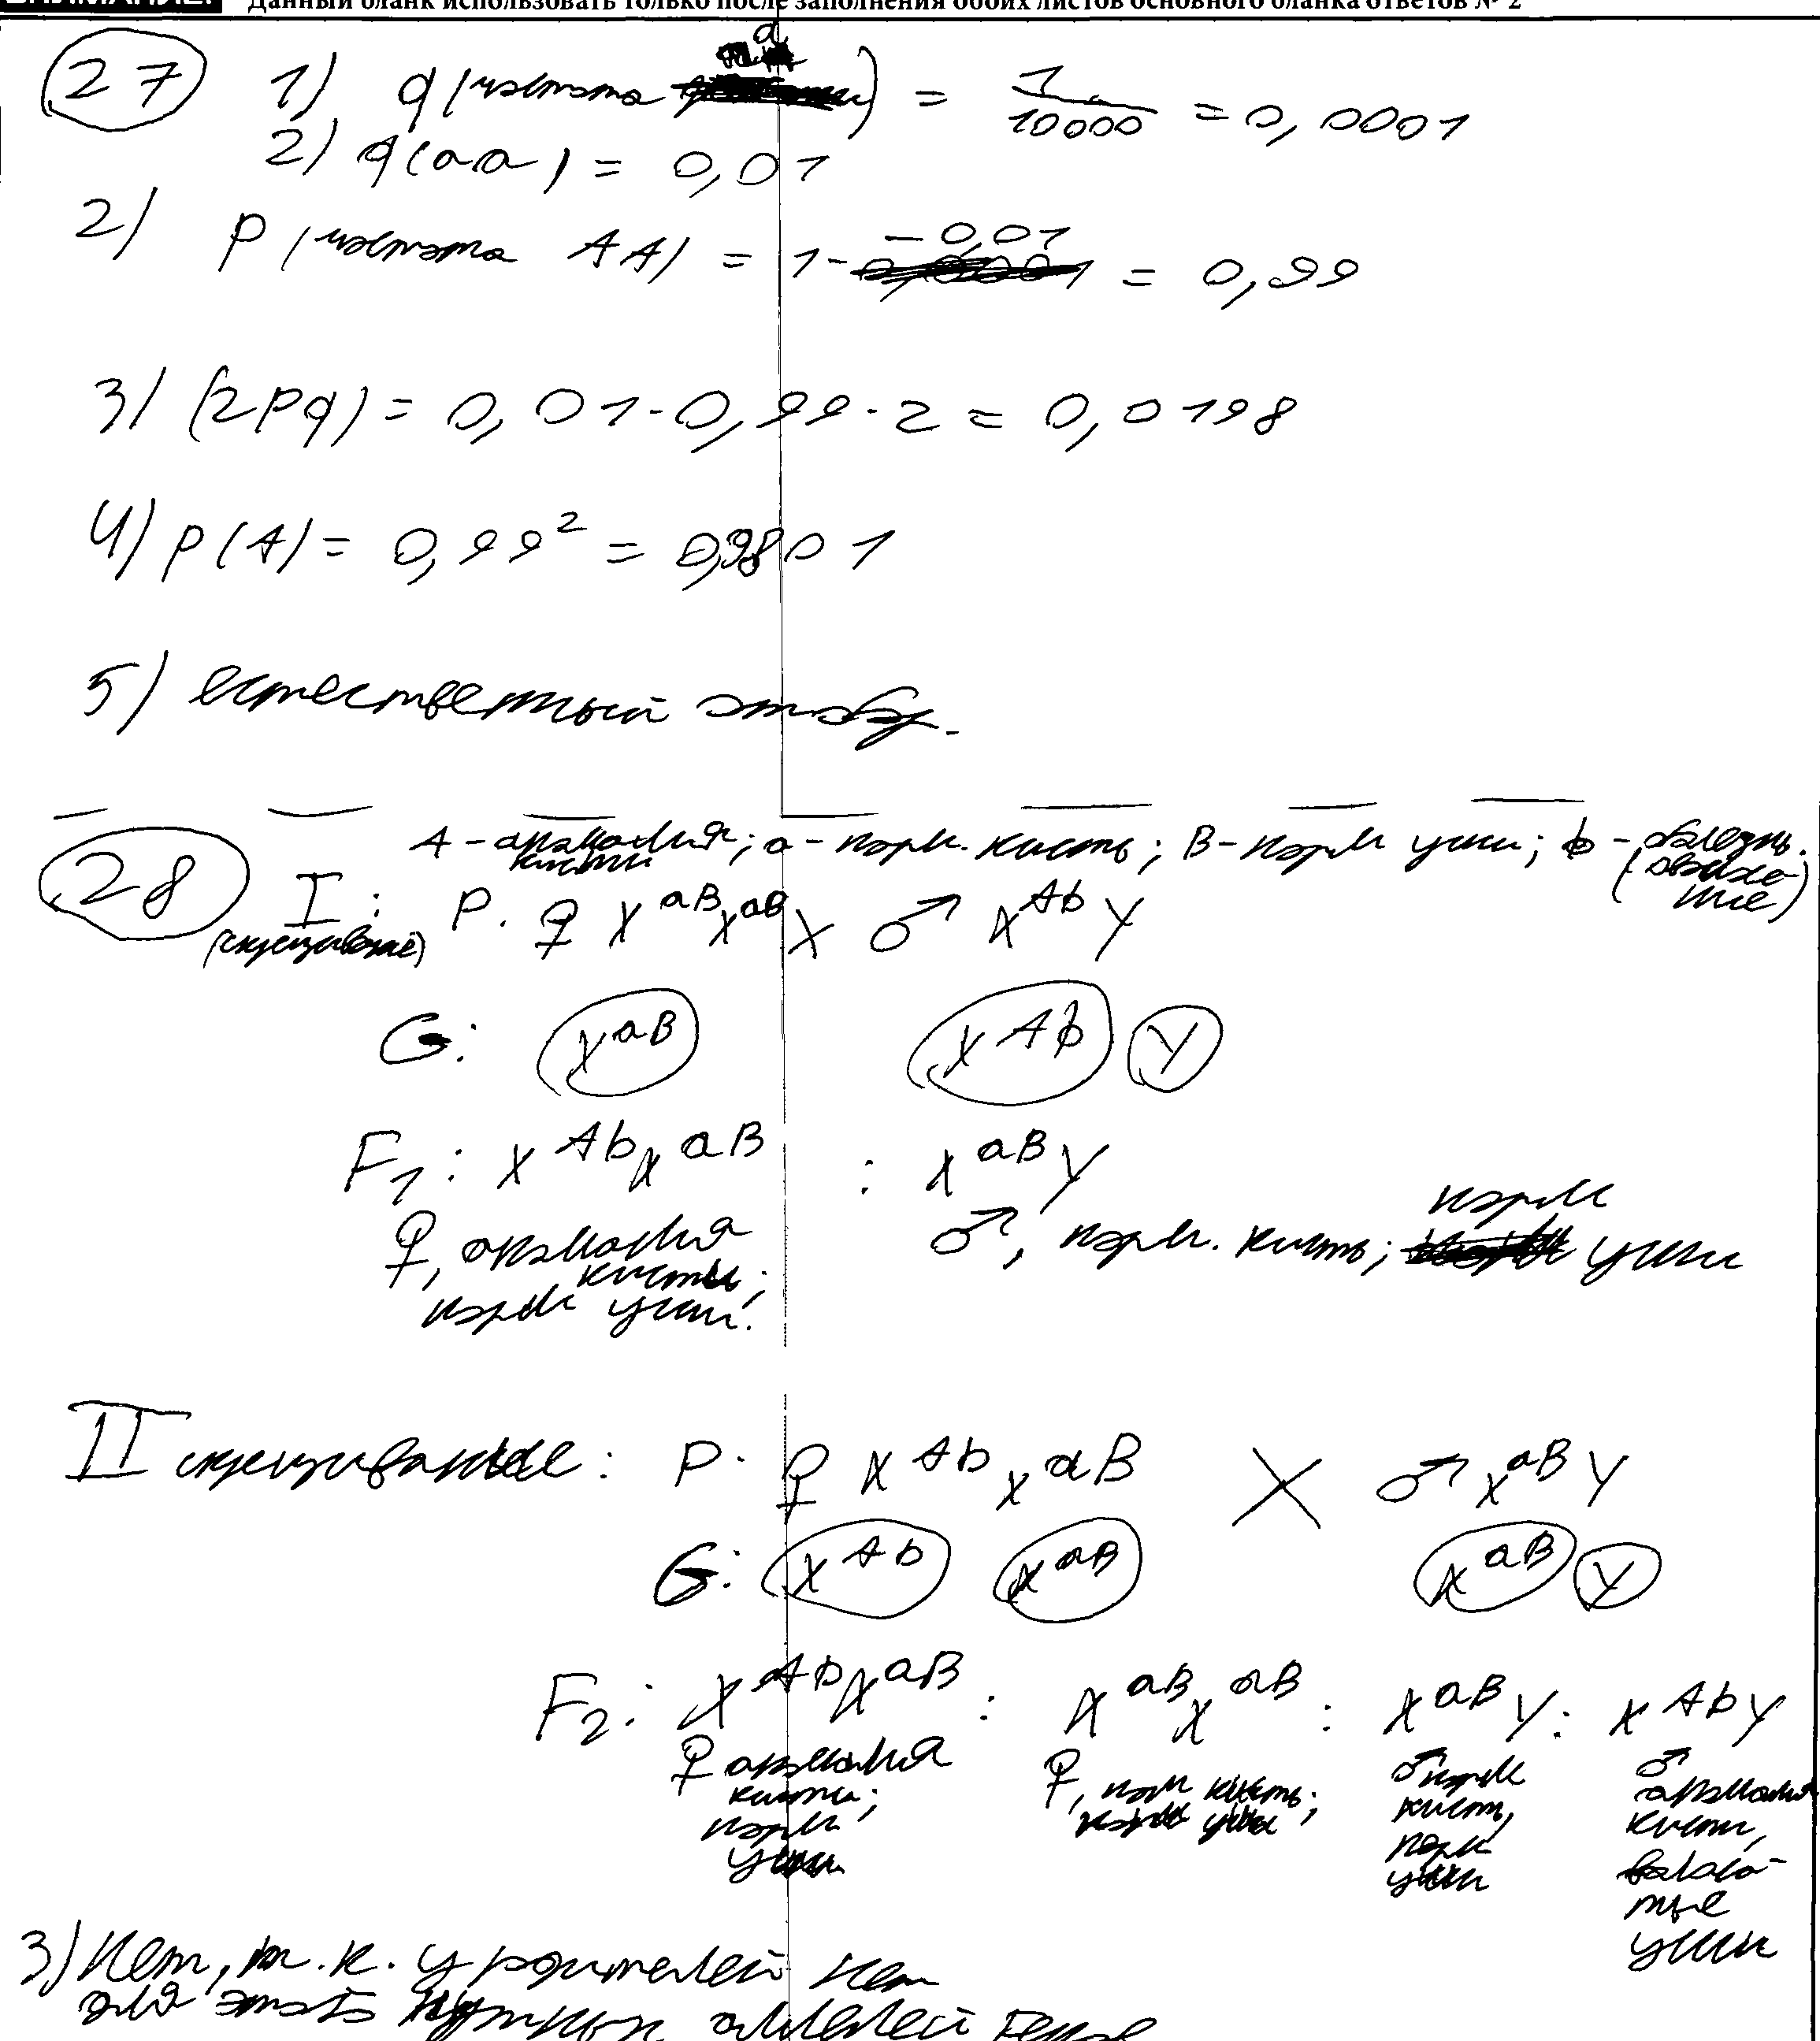 Данный бланк использовать только после заполнения обоих листов основного бланка ответов № 2
27 1) q (частота a) = 1/10000 = 0,0001
2) q(aa) = 0,01
2) P (частота AA) = 1 - 0,01 = 0,99
3) (2pq) = 0,01·0,99·2 = 0,0198
4) P(A) = 0,99² = 0,9801
5) естественный отбор.
28 A - аномалия кисти; a - норм. кисть; B - норм уши; b - болезнь.
I: (скрещивание) P. ♀ X^aB X^aB X ♂ X^Ab Y
G: X^aB X^Ab Y
F₁: X^Ab X^aB : X^aB Y
♀, аномалия кисти; норм уши. ♂, норм. кисть; норм уши
II скрещивание: P. ♀ X^Ab X^aB X ♂ X^aB Y
G: X^Ab X^aB X^aB Y
F₂: X^Ab X^aB : X^aB X^aB : X^aB Y : X^Ab Y
♀ аномалия кисти; норм уши ♀, норм кисть; норм уши ♂ норм кисть, норм уши ♂ аномалия кисти, уши
3) Нет, т.к. у родителей нет
для этого нужных аллелей